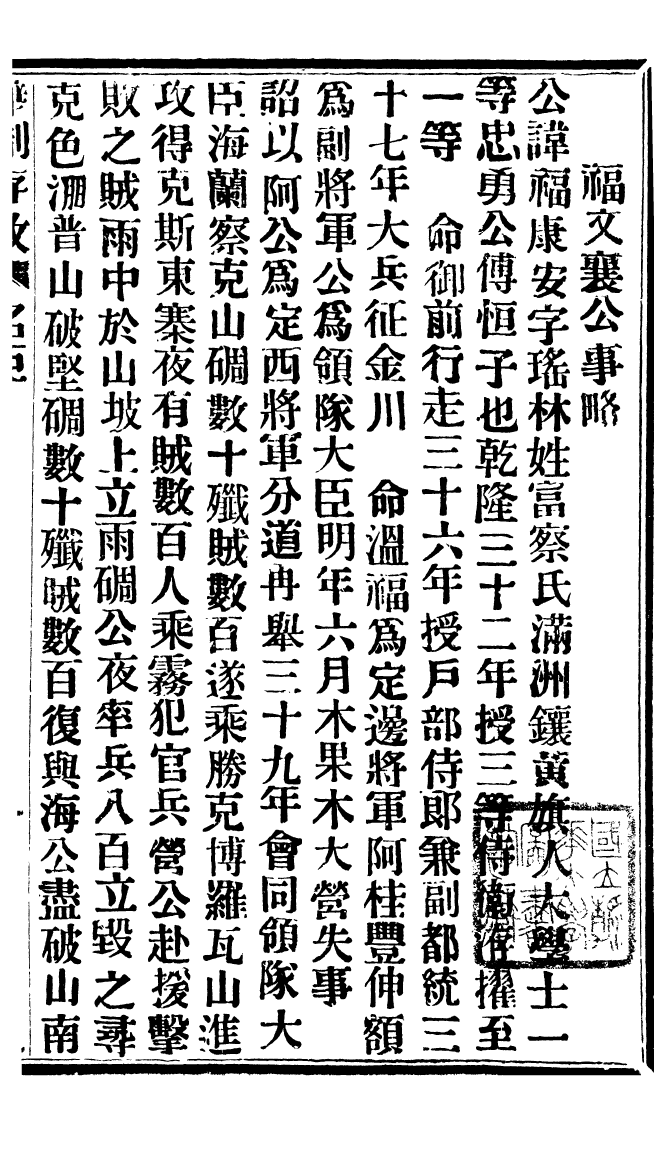 福文襄公事略
公諱福康安字瑤林姓富察氏滿洲鑲黃旗人大學士一
等忠勇公傅恒子也乾隆三十二年授三等侍衛洊擢至
一等 命御前行走三十六年授戶部侍郎兼副都統三
十七年大兵征金川 命溫福為定邊將軍阿桂豐伸額
為副將軍公為領隊大臣明年六月木果木大營失事
詔以阿公為定西將軍分道冉舉三十九年會同領隊大
臣海蘭察克山碉數十殲賊數百遂乘勝克博羅瓦山進
攻得克斯東寨夜有賊數百人乘霧犯官兵營公赴援擊
敗之賊雨中於山坡上立兩碉公夜率兵八百立毀之尋
克色淜普山破堅碉數十殲賊數百復與海公盡破山南